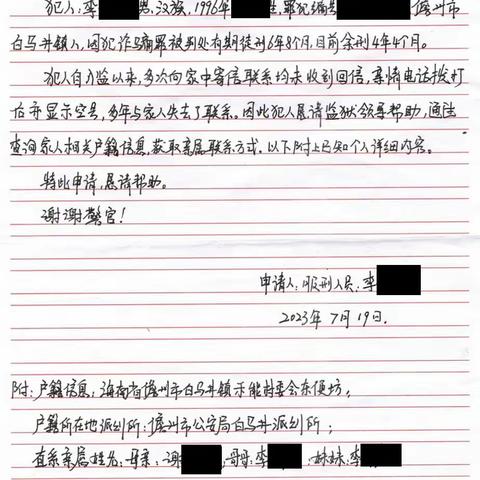 犯人:李 男,汉族,1996年 生,罪犯编号 儋州市
白马井镇人,因犯诈骗罪被判处有期徒刑6年8个月,目前余刑4年4个月。
犯人自入监以来,多次向家中寄信联系均未收到回信,亲情电话拨打
后亦显示空号,多年与家人失去了联系。因此犯人恳请监狱领导帮助,通过
查询家人相关户籍信息,获取亲属联系方式。以下附上已知个人详细内容。
特此申请,恳请帮助。
谢谢警官!
申请人:服刑人员:李
2023年7月19日.
附:户籍信息:海南省儋州市白马井镇 村委会东便坊。
户籍所在地派出所:儋州市公安局白马井派出所;
直系亲属姓名:母亲:谢 ;哥哥:李 ;妹妹:李